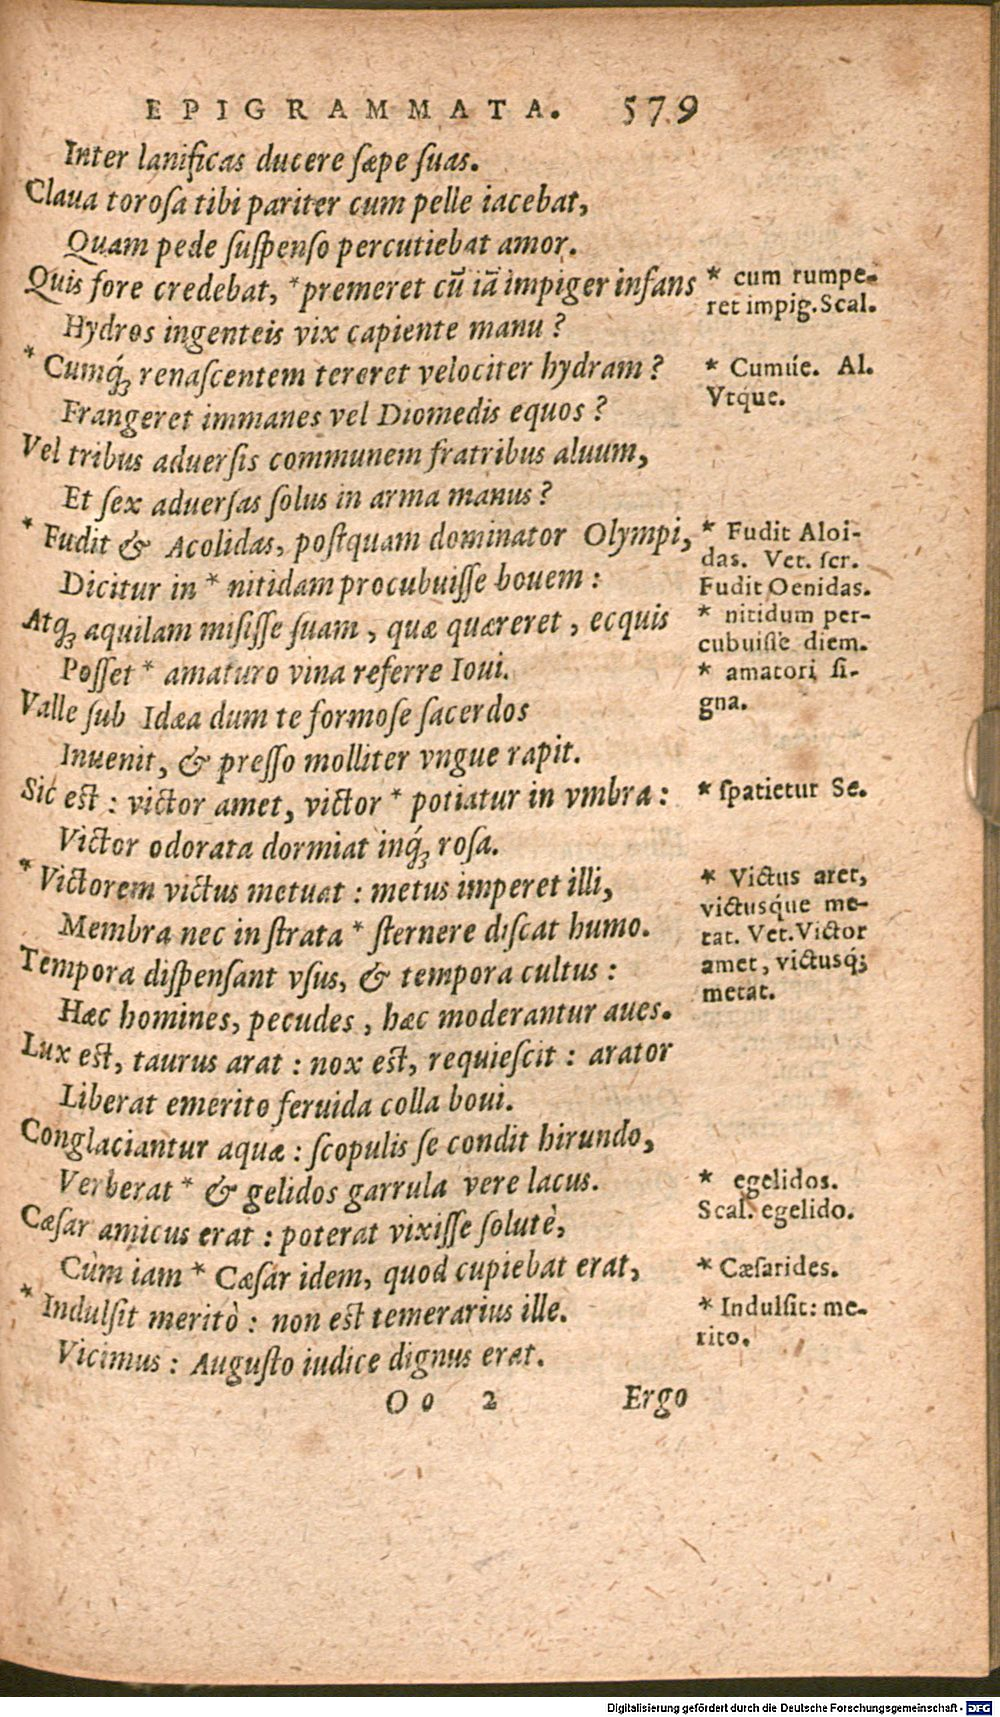 EPIGRAMMATA. 579
Inter lanificas ducere sæpe suas.
Claua torosa tibi pariter cum pelle iacebat,
Quam pede suspenso percutiebat amor.
Quis fore credebat, *premeret cū iā impiger infans
Hydros ingenteis vix capiente manu?
* Cumq́ꝫ renascentem tereret velociter hydram?
Frangeret immanes vel Diomedis equos?
Vel tribus aduersis communem fratribus aluum,
Et sex aduersas solus in arma manus?
* Fudit & Acolidas, postquam dominator Olympi,
Dicitur in * nitidam procubuisse bouem:
Atqꝫ aquilam misisse suam, quæ quæreret, ecquis
Posset * amaturo vina referre Ioui.
Valle sub Idæa dum te formose sacerdos
Inuenit, & presso molliter vngue rapit.
Sic est: victor amet, victor * potiatur in vmbra:
Victor odorata dormiat inq́ꝫ rosa.
* Victorem victus metuat: metus imperet illi,
Membra nec in strata * sternere discat humo.
Tempora dispensant vsus, & tempora cultus:
Hæc homines, pecudes, hæc moderantur aues.
Lux est, taurus arat: nox est, requiescit: arator
Liberat emerito feruida colla boui.
Conglaciantur aquæ: scopulis se condit hirundo,
Verberat * & gelidos garrula vere lacus.
Cæsar amicus erat: poterat vixisse solutè,
Cùm iam * Cæsar idem, quod cupiebat erat,
* Indulsit meritò: non est temerarius ille.
Vicimus: Augusto iudice dignus erat.
Oo 2 Ergo
* cum rumpe-
ret impig. Scal.
* Cumúe. Al.
Vtque.
* Fudit Aloi-
das. Vet. scr.
Fudit Oenidas.
* nitidum per-
cubuisse diem.
* amatori si-
gna.
* spatietur Se.
* Victus aret,
victusque me-
tat. Vet. Victor
amet, victusqꝫ
metat.
* egelidos.
Scal. egelido.
* Cæsarides.
* Indulsit: me-
rito.
Digitalisierung gefördert durch die Deutsche Forschungsgemeinschaft - DFG